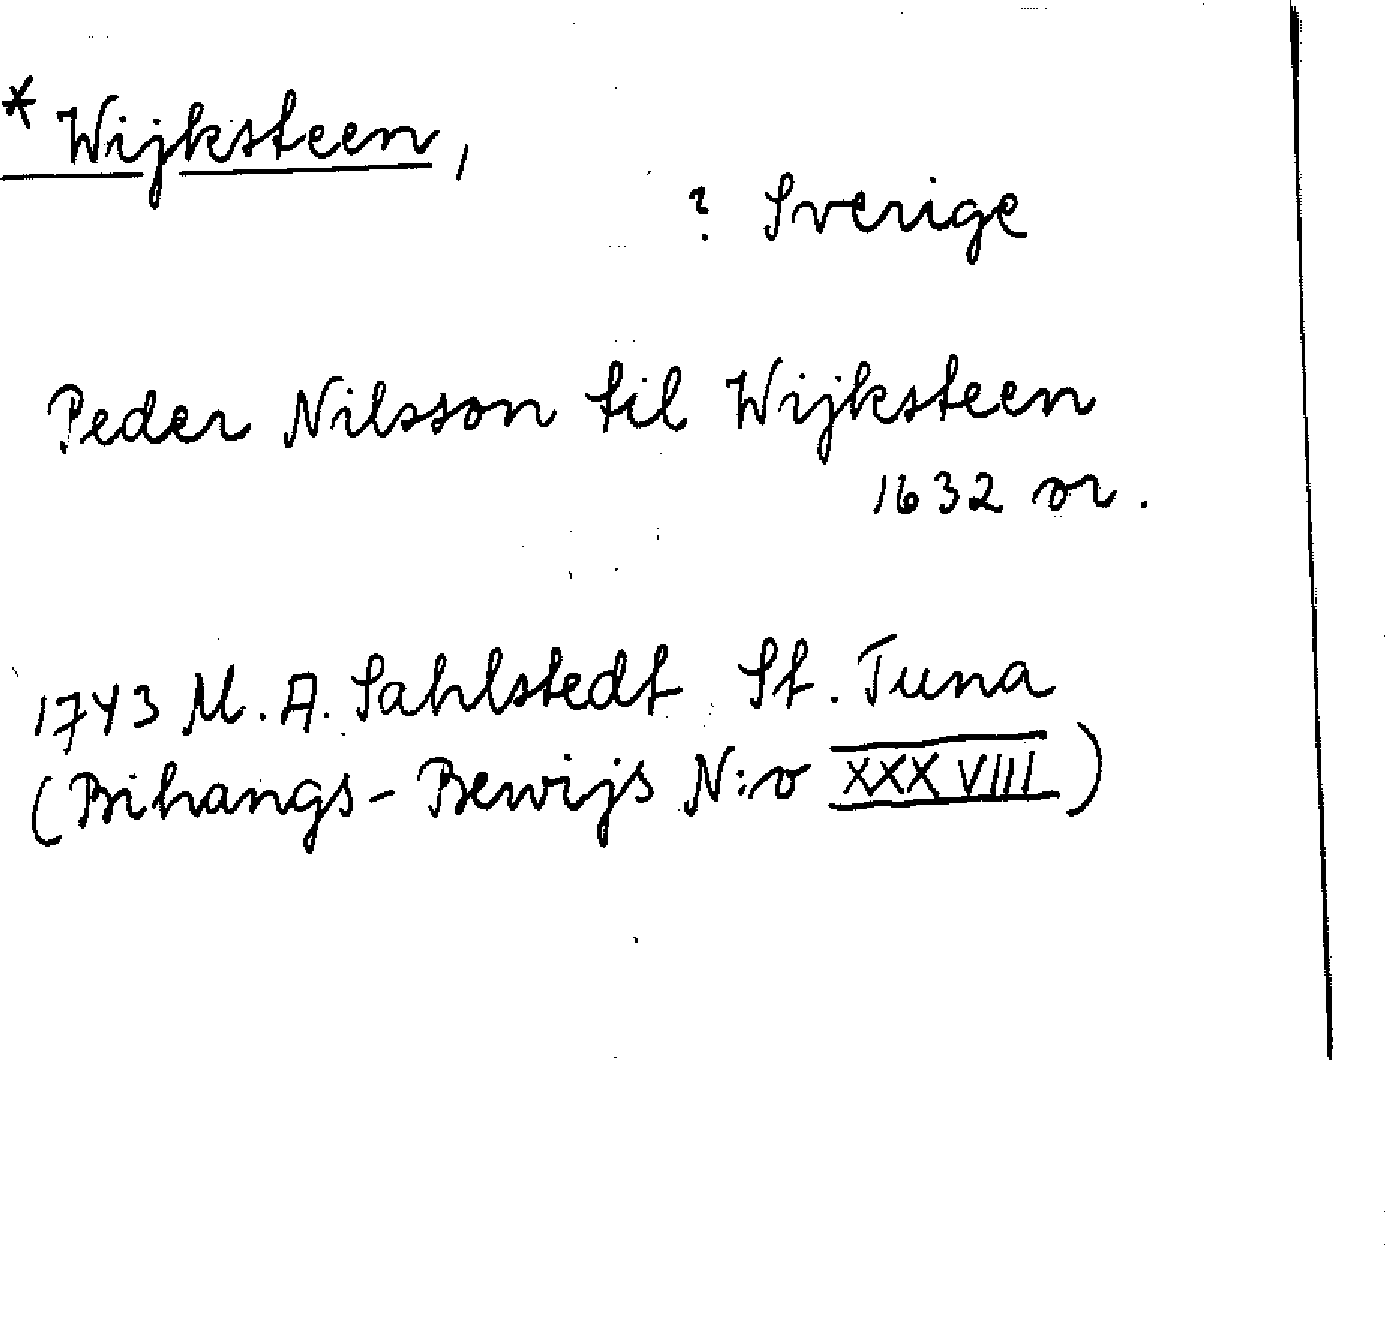 * Wijksteen,
? Sverige
Peder Nilsson til Wijksteen
1632 or.
1743 M. A. Sahlstedt St. Tuna
(Bihangs-Bewijs N:o XXXVIII)